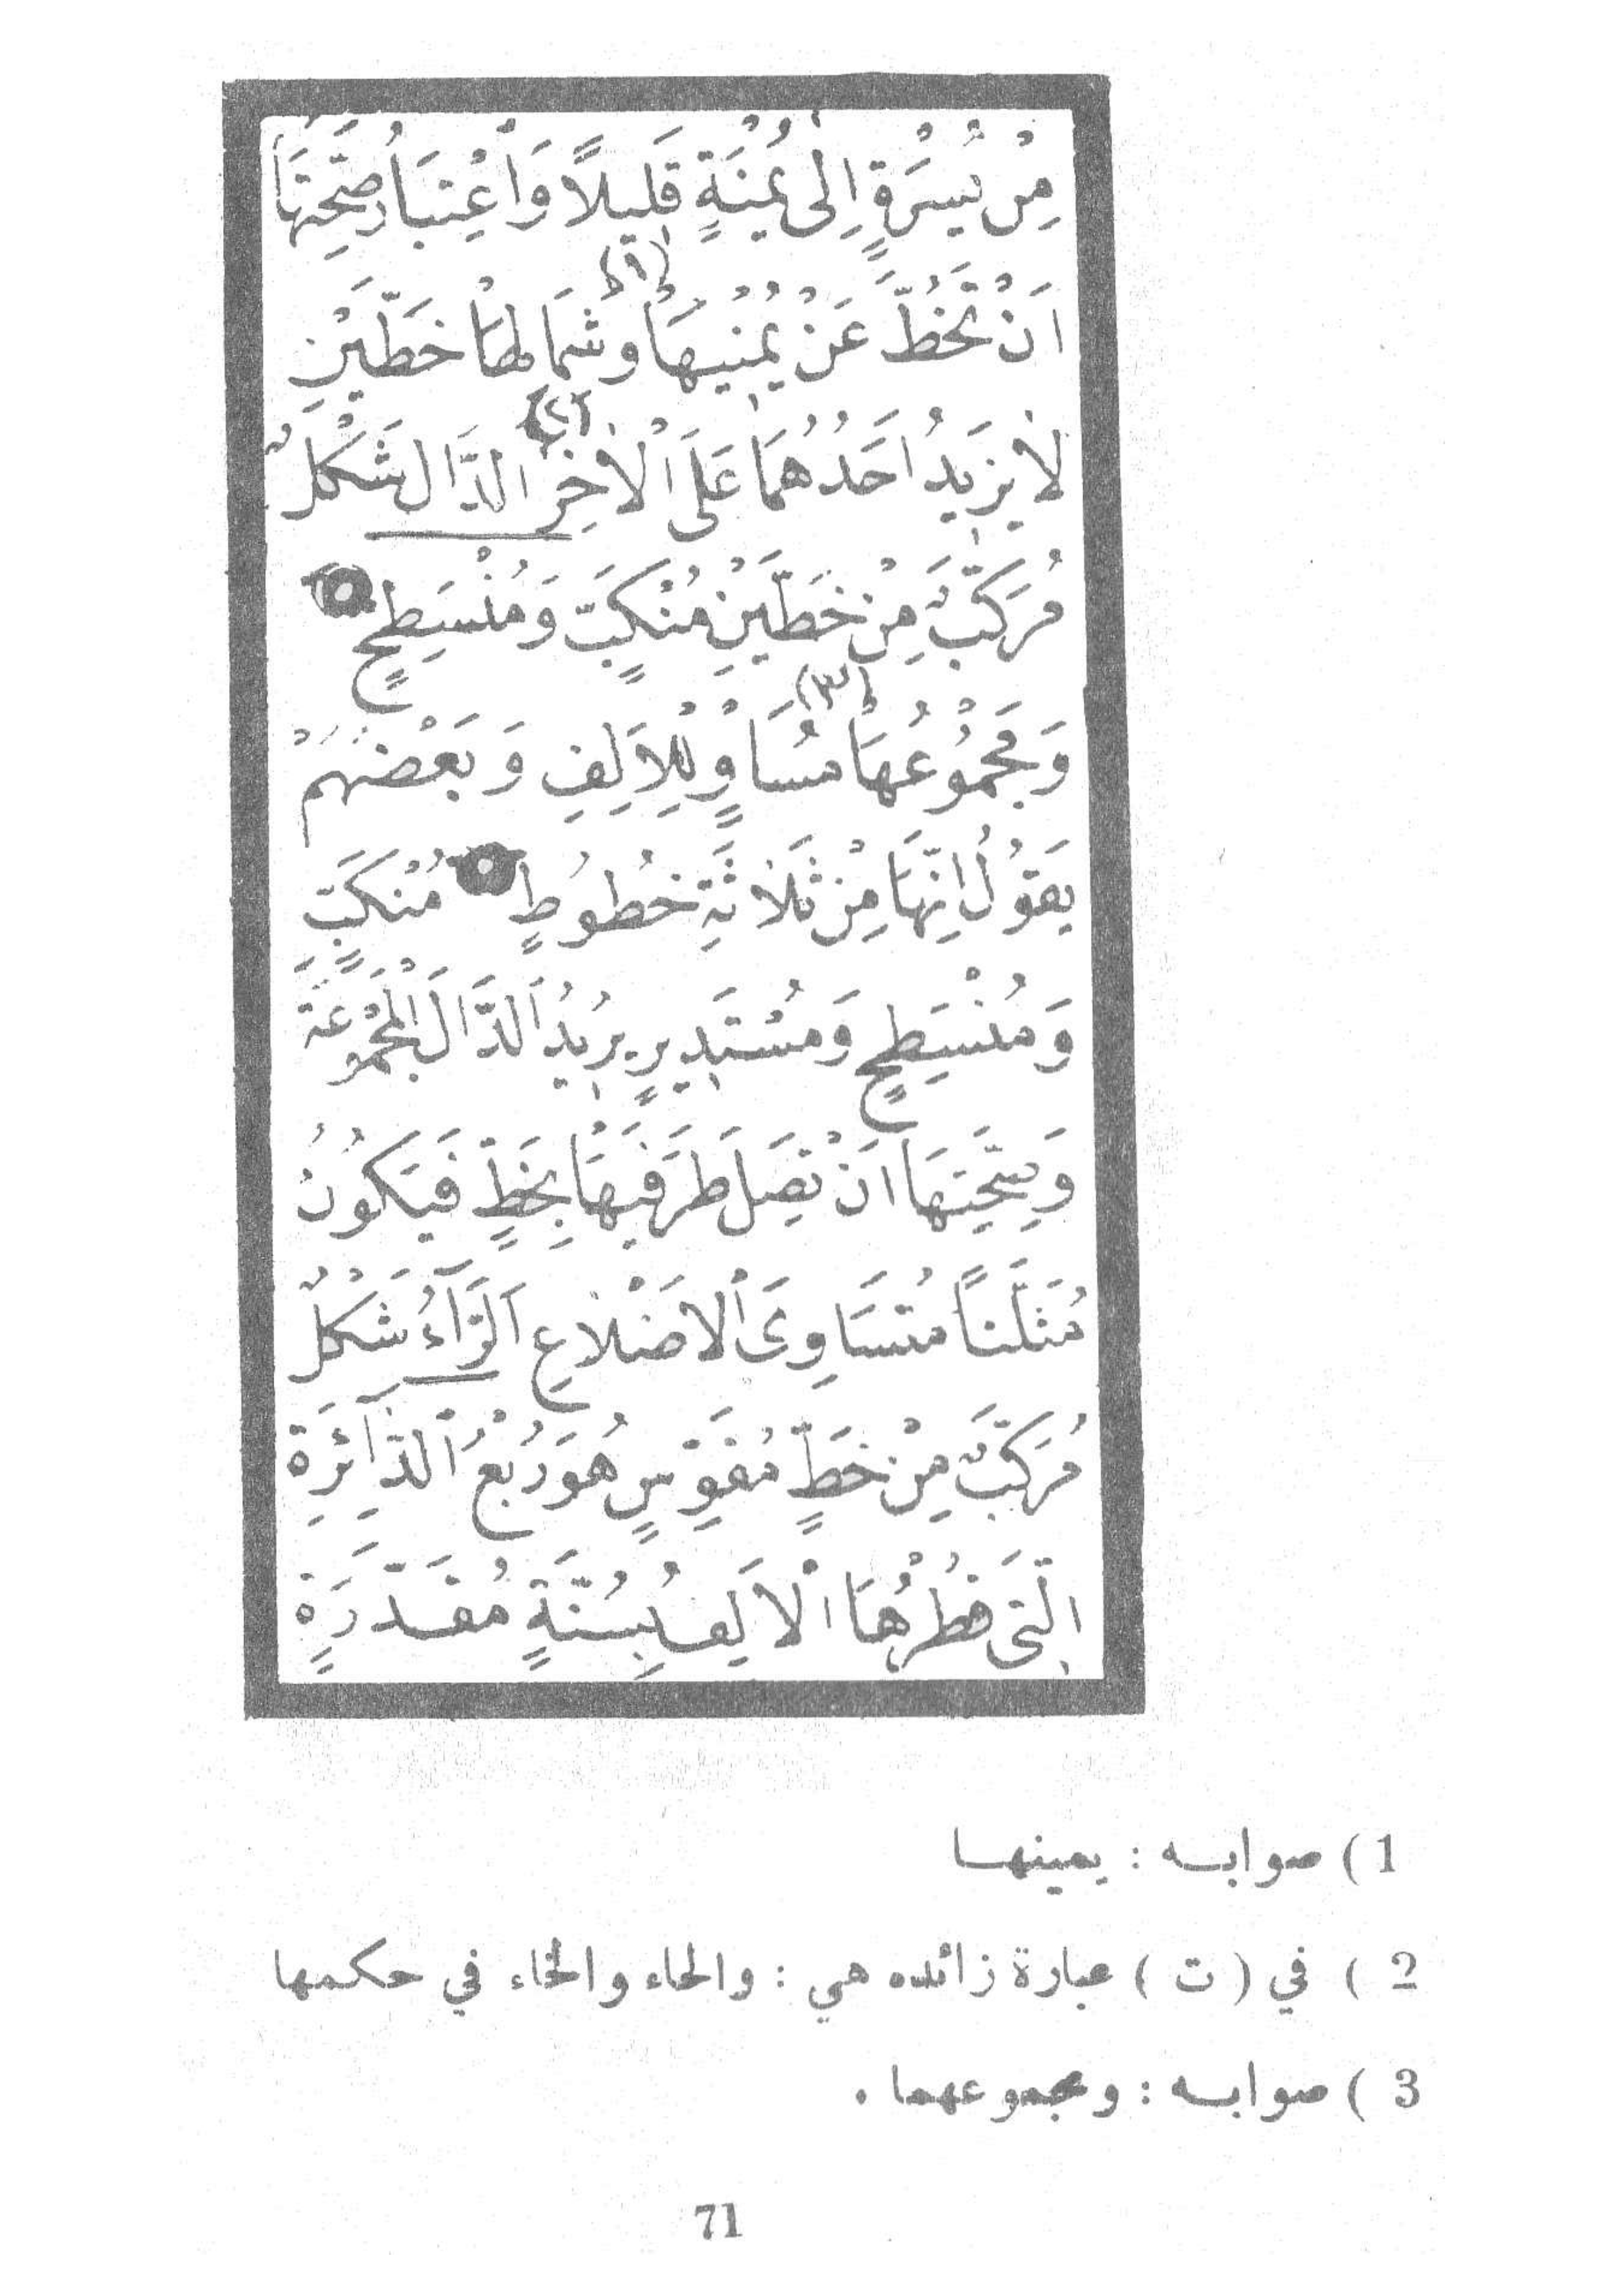 مِنْ يُسْرَةٍ اِلٰى يُمْنَةٍ قَلِيلًا وَاعْتِبَارُ صِحَّتِهَا
اَنْ تَخُطَّ عَنْ يُمْنِيهَا (١) وَشِمَالِهَا خَطَّيْنِ
لَا يَزِيدُ اَحَدُهُمَا عَلَى الْاٰخِرِ (٢) الدَّالُ شَكْلٌ
مُرَكَّبٌ مِنْ خَطَّيْنِ مُنْكَبٍّ وَمُنْسَطِحٍ
وَمَجْمُوعُهَا (٣) مُسَاوٍ لِلْاَلِفِ وَبَعْضُهُمْ
يَقُولُ اِنَّهَا مِنْ ثَلَاثَةِ خُطُوطٍ مُنْكَبٍّ
وَمُنْسَطِحٍ وَمُسْتَدِيرٍ يُرِيدُ الدَّالَ الْمَجْمُوعَةَ
وَصِحَّتِهَا اَنْ تَصِلَ طَرَفَيْهَا بِخَطٍّ فَيَكُونُ
مُثَلَّثاً مُتَسَاوِىَ الْاَضْلَاعِ اَلرَّآءُ شَكْلٌ
مُرَكَّبٌ مِنْ خَطٍّ مُقَوِّسٍ هُوَ رُبْعُ الدَّآئِرَةِ
الَّتِى قُطْرُهَا الْاَلِفُ بِسُنَّةٍ مُقَدَّرَةٍ
1 ) صوابه : يمينها
2 ) في ( ت ) عبارة زائده هي : والحاء والخاء في حكمها
3 ) صوابه : ومجموعهما .
71